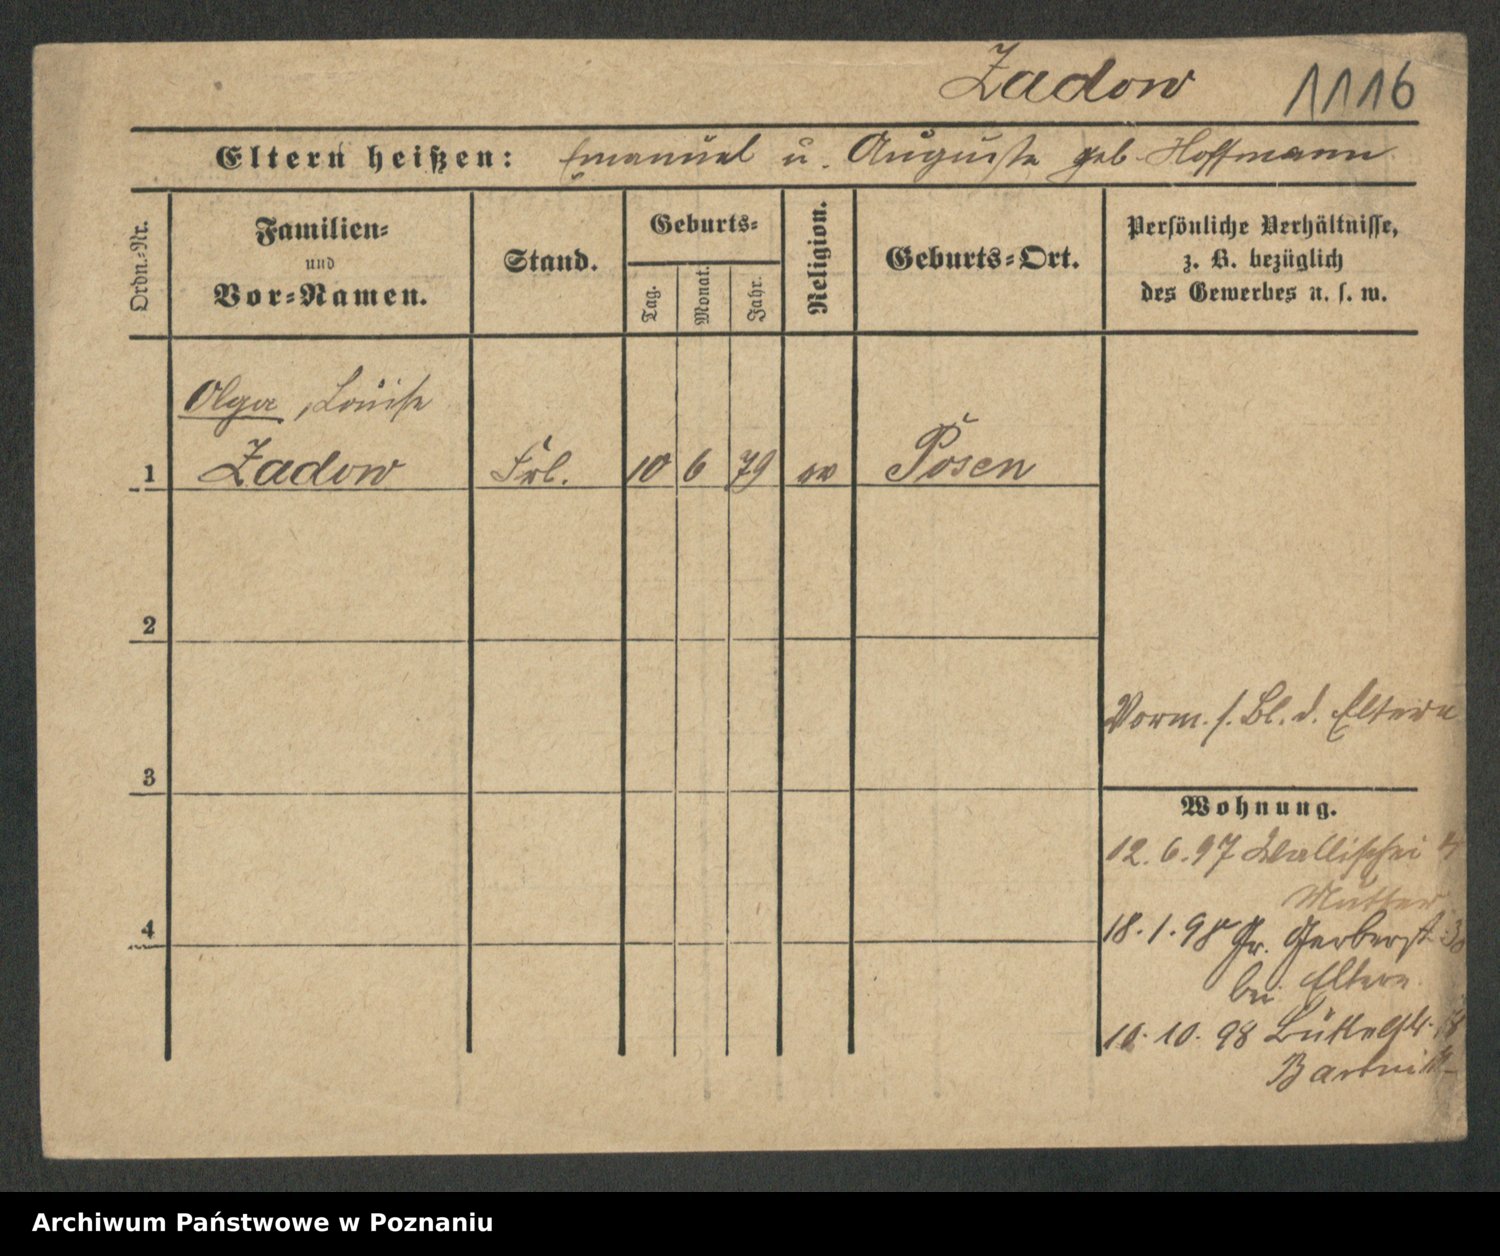 Zadow 1116
Eltern heißen: Emanuel u. Auguste geb Hoffmann
Ordn.-Nr.
Familien-
und
Vor-Namen.
Stand.
Geburts-
Tag.
Monat.
Jahr.
Religion.
Geburts-Ort.
Persönliche Verhältnisse,
z. B. bezüglich
des Gewerbes u. s. w.
Olga, Louise
1 Zadow Frl. 10 6 79 ev Posen
2
Vorm. s. Bl. d. Eltern
3
Wohnung.
12. 6. 97 Wallischei
Mutter
4
18. 1. 98 Gr. Gerberst 30
bei Eltern
10. 10. 98
Archiwum Państwowe w Poznaniu